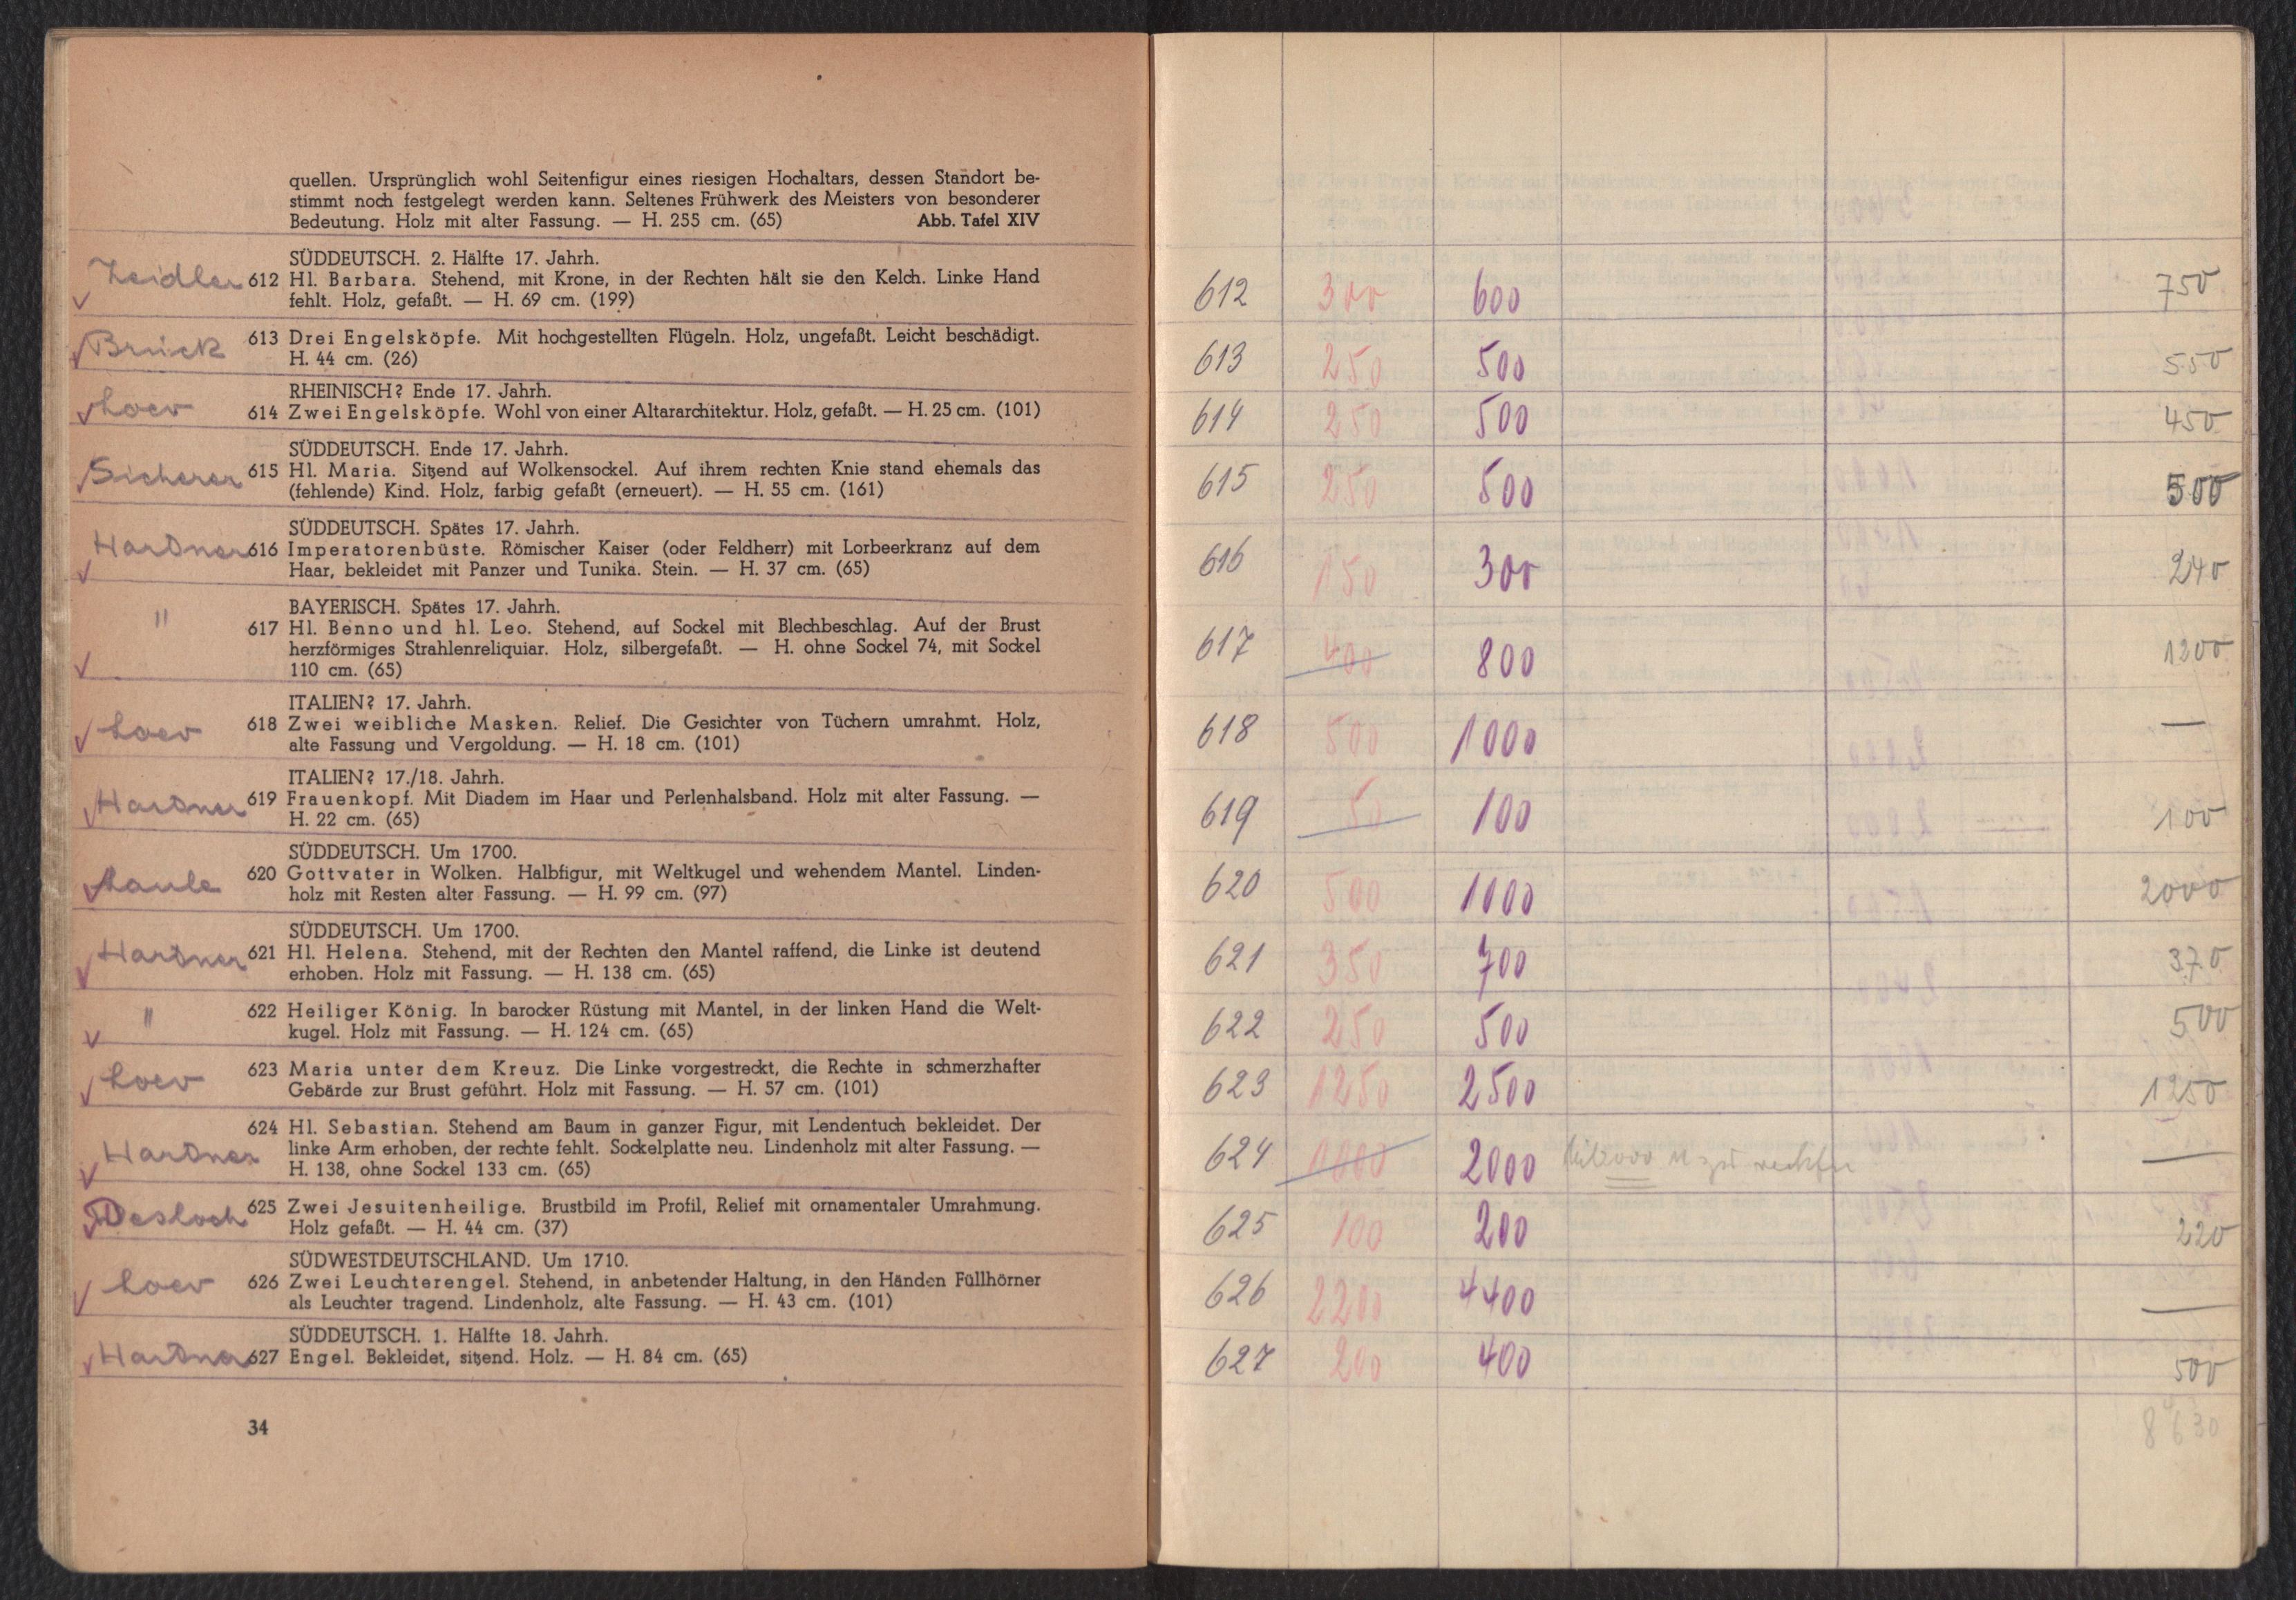 quellen. Ursprünglich wohl Seitenfigur eines riesigen Hochaltars, dessen Standort be-
stimmt noch festgelegt werden kann. Seltenes Frühwerk des Meisters von besonderer
Bedeutung. Holz mit alter Fassung. — H. 255 cm. (65) Abb. Tafel XIV
SÜDDEUTSCH. 2. Hälfte 17. Jahrh.
Zeidler 612 Hl. Barbara. Stehend, mit Krone, in der Rechten hält sie den Kelch. Linke Hand
fehlt. Holz, gefaßt. — H. 69 cm. (199)
Brück 613 Drei Engelsköpfe. Mit hochgestellten Flügeln. Holz, ungefaßt. Leicht beschädigt.
H. 44 cm. (26)
RHEINISCH? Ende 17. Jahrh.
Loev 614 Zwei Engelsköpfe. Wohl von einer Altararchitektur. Holz, gefaßt. — H. 25 cm. (101)
SÜDDEUTSCH. Ende 17. Jahrh.
Sicherer 615 Hl. Maria. Sitzend auf Wolkensockel. Auf ihrem rechten Knie stand ehemals das
(fehlende) Kind. Holz, farbig gefaßt (erneuert). — H. 55 cm. (161)
SÜDDEUTSCH. Spätes 17. Jahrh.
Hartner 616 Imperatorenbüste. Römischer Kaiser (oder Feldherr) mit Lorbeerkranz auf dem
Haar, bekleidet mit Panzer und Tunika. Stein. — H. 37 cm. (65)
BAYERISCH. Spätes 17. Jahrh.
" 617 Hl. Benno und hl. Leo. Stehend, auf Sockel mit Blechbeschlag. Auf der Brust
herzförmiges Strahlenreliquiar. Holz, silbergefaßt. — H. ohne Sockel 74, mit Sockel
110 cm. (65)
ITALIEN? 17. Jahrh.
Loev 618 Zwei weibliche Masken. Relief. Die Gesichter von Tüchern umrahmt. Holz,
alte Fassung und Vergoldung. — H. 18 cm. (101)
ITALIEN? 17./18. Jahrh.
Hartner 619 Frauenkopf. Mit Diadem im Haar und Perlenhalsband. Holz mit alter Fassung. —
H. 22 cm. (65)
SÜDDEUTSCH. Um 1700.
620 Gottvater in Wolken. Halbfigur, mit Weltkugel und wehendem Mantel. Linden-
holz mit Resten alter Fassung. — H. 99 cm. (97)
SÜDDEUTSCH. Um 1700.
Hartner 621 Hl. Helena. Stehend, mit der Rechten den Mantel raffend, die Linke ist deutend
erhoben. Holz mit Fassung. — H. 138 cm. (65)
" 622 Heiliger König. In barocker Rüstung mit Mantel, in der linken Hand die Welt-
kugel. Holz mit Fassung. — H. 124 cm. (65)
Loev 623 Maria unter dem Kreuz. Die Linke vorgestreckt, die Rechte in schmerzhafter
Gebärde zur Brust geführt. Holz mit Fassung. — H. 57 cm. (101)
624 Hl. Sebastian. Stehend am Baum in ganzer Figur, mit Lendentuch bekleidet. Der
Hartner linke Arm erhoben, der rechte fehlt. Sockelplatte neu. Lindenholz mit alter Fassung. —
H. 138, ohne Sockel 133 cm. (65)
Desloch 625 Zwei Jesuitenheilige. Brustbild im Profil, Relief mit ornamentaler Umrahmung.
Holz gefaßt. — H. 44 cm. (37)
SÜDWESTDEUTSCHLAND. Um 1710.
Loev 626 Zwei Leuchterengel. Stehend, in anbetender Haltung, in den Händen Füllhörner
als Leuchter tragend. Lindenholz, alte Fassung. — H. 43 cm. (101)
SÜDDEUTSCH. 1. Hälfte 18. Jahrh.
Hartner 627 Engel. Bekleidet, sitzend. Holz. — H. 84 cm. (65)
34
612 300 600 750
613 250 500 550
614 250 500 450
615 250 500 500
616 150 300 240
617 400 800 1200
618 500 1000 —
619 50 100 100
620 500 1000 2000
621 350 700 370
622 250 500 500
623 1250 2500 1250
624 1000 2000 —
625 100 200 220
626 2200 4400 —
627 200 400 500
8630